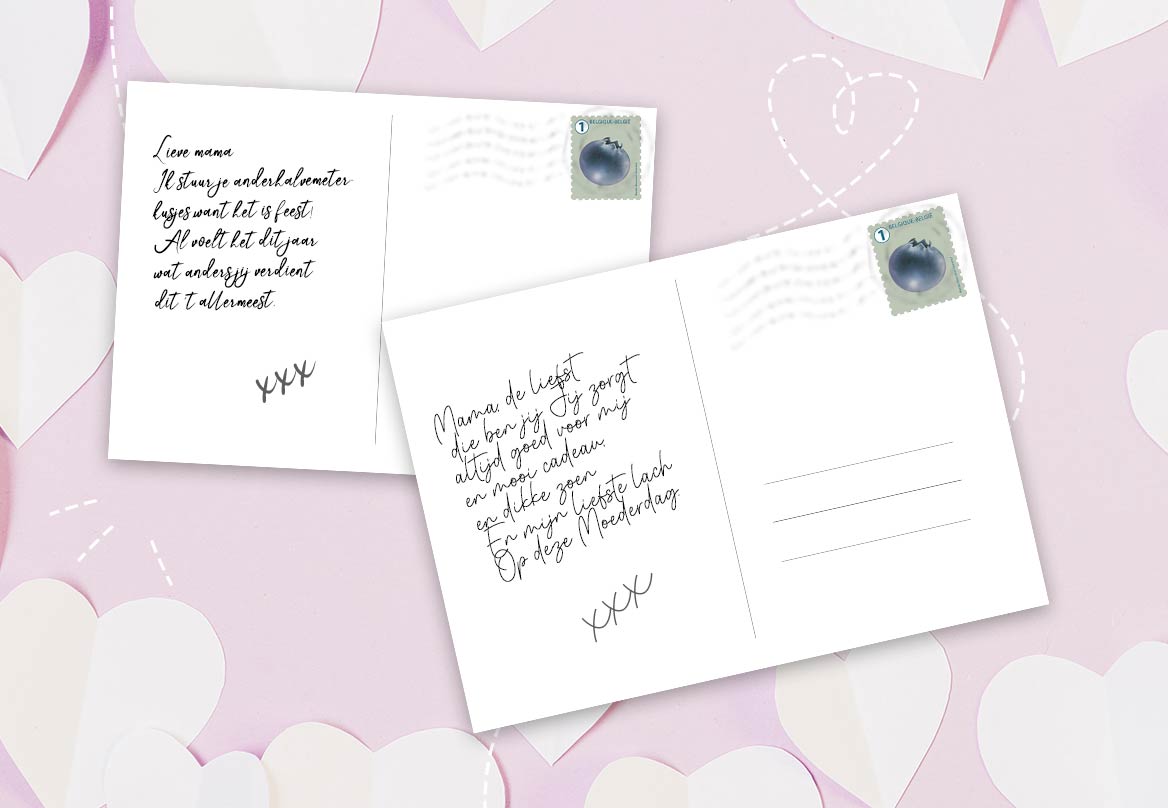 Lieve mama
Ik stuur je anderhalvemeter
kusjes want het is feest!
Al voelt het dit jaar
wat anders, jij verdient
dit 't allermeest.
xxx
1 BELGIQUE-BELGIË
Mama, de liefst
die ben jij Jij zorgt
altijd goed voor mij
en mooi cadeau,
en dikke zoen
En mijn liefste lach
Op deze Moederdag.
xxx
1 BELGIQUE-BELGIË